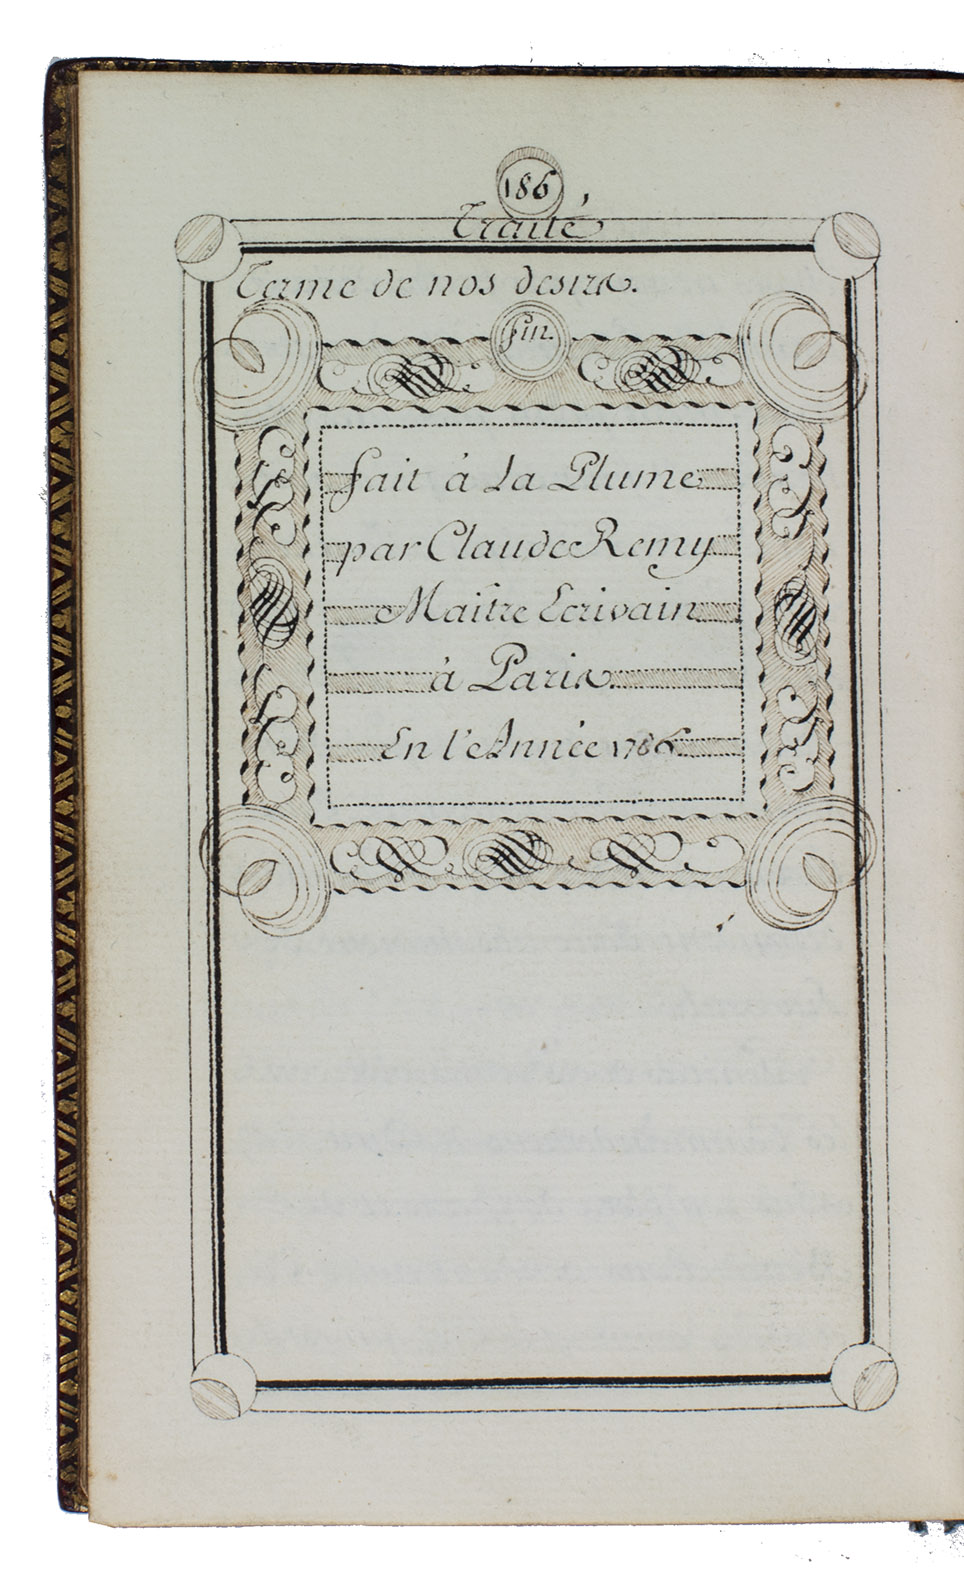 186
Traité
Terme de nos desirs.
fin.
fait à La Plume
par Claude Remy
Maitre Ecrivain
à Paris.
En l'Année 1786.